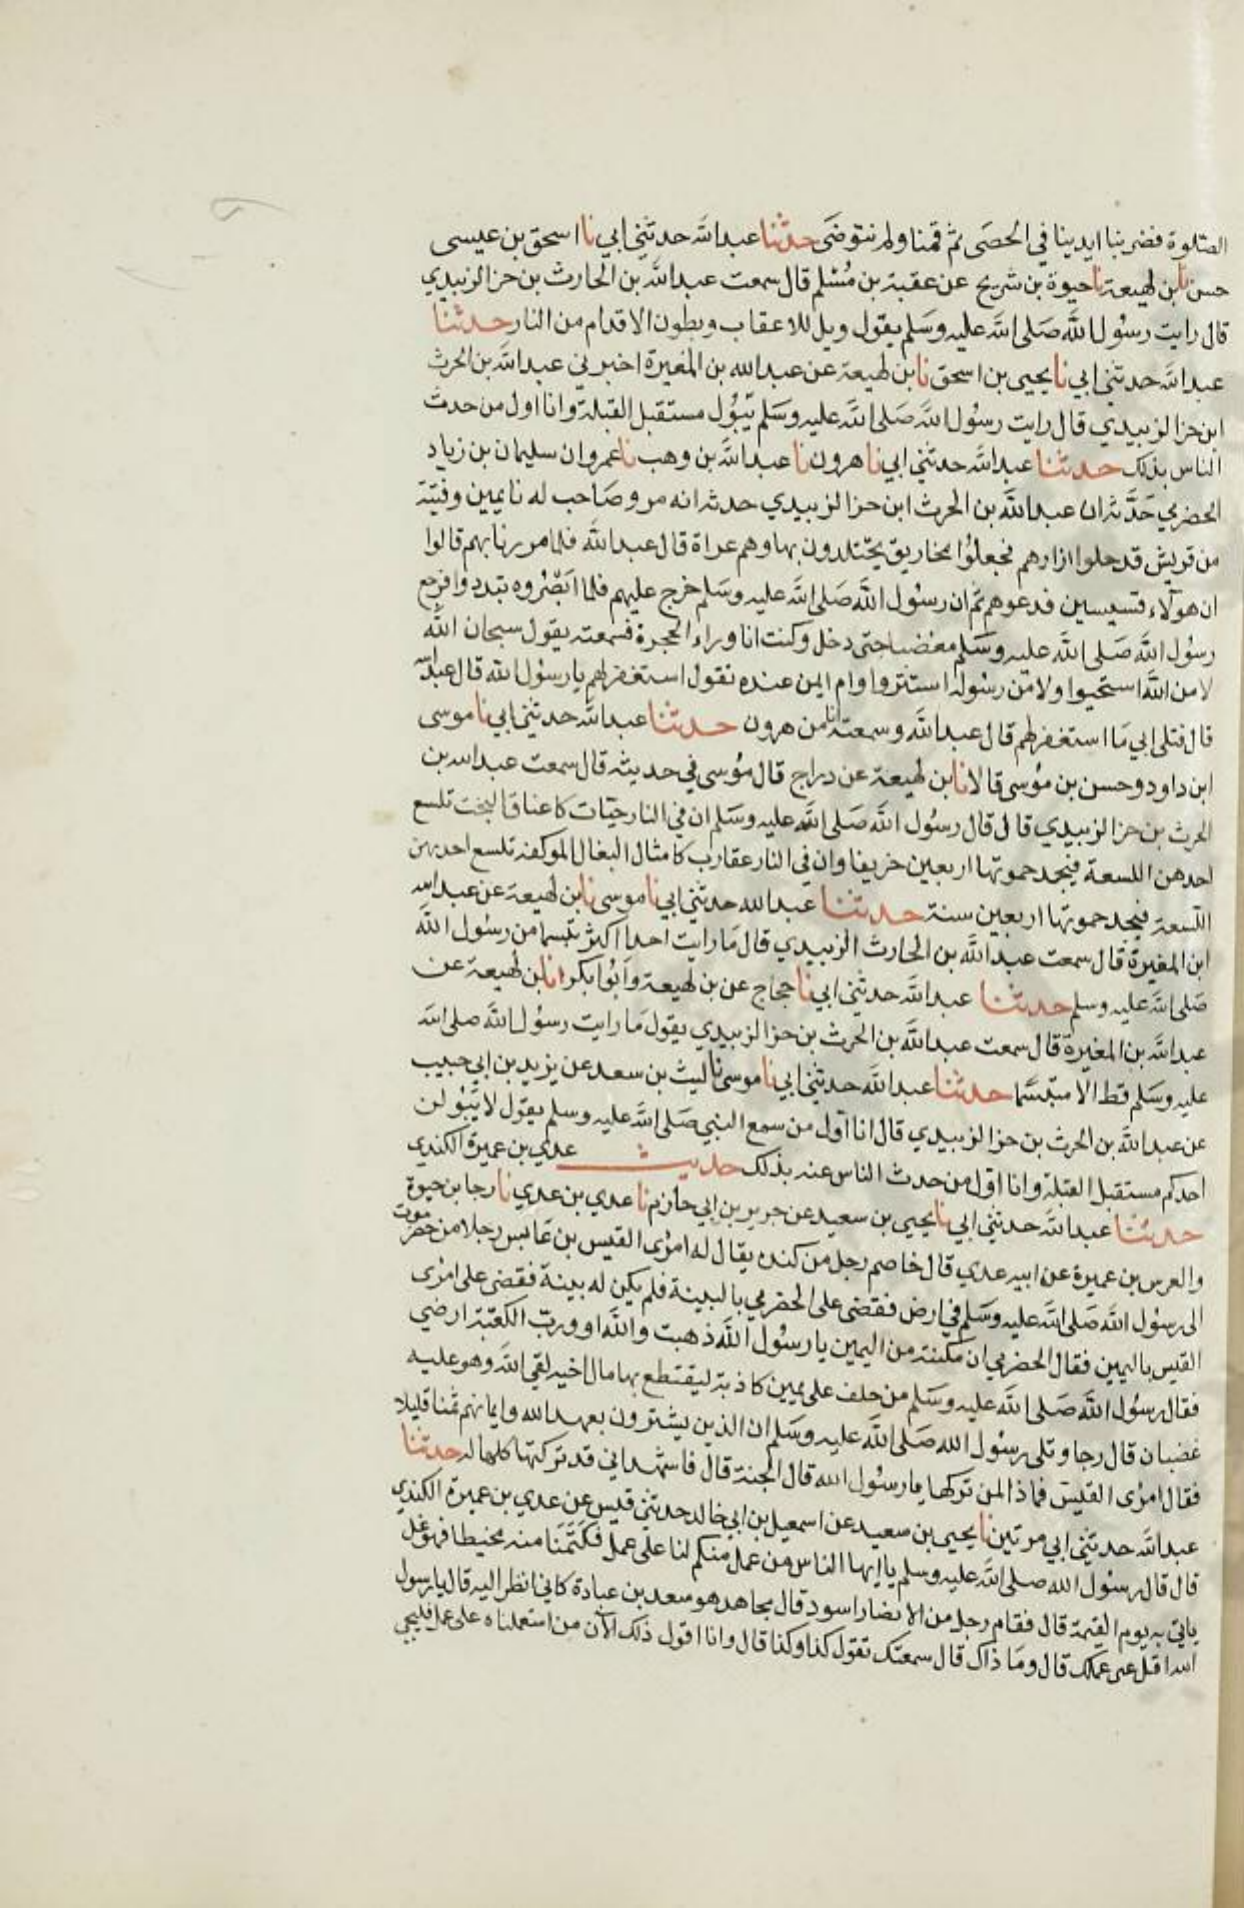 الصلوة فضربنا ايدينا في الحصى ثم قمنا ولم نتوضى حدثنا عبدالله حدثني ابي نا اسحق بن عيسى
حسن نا بن لهيعة نا حيوة بن شريح عن عقبة بن مسلم قال سمعت عبدالله بن الحارث بن جزا الزبيدي
قال رايت رسول الله صلى الله عليه وسلم يقول ويل للاعقاب وبطون الاقدام من النار حدثنا
عبدالله حدثني ابي نا يحيى بن اسحق نا بن لهيعة عن عبد الله بن المغيرة اخبرني عبدالله بن الحرث
ابن جزا الزبيدي قال رايت رسول الله صلى الله عليه وسلم يبول مستقبل القبلة وانا اول من حدث
الناس بذلك حدثنا عبدالله حدثني ابي نا هرون نا عبدالله بن وهب نا عمرو ان سليمان بن زياد
الحضرمي حدثه ان عبدالله بن الحرث ابن جزا الزبيدي حدثه انه مر وصاحب له نايمين وفتية
من قريش قد حلوا ازارهم فجعلوا مخاريق يجتلدون بها وهم عراة قال عبدالله فلما مررنا بهم قالوا
ان هولاء قسيسين فدعوهم ثم ان رسول الله صلى الله عليه وسلم خرج عليهم فلما ابصروه تبددوا فرجع
رسول الله صلى الله عليه وسلم مغضبا حتى دخل وكنت انا وراء الحجرة فسمعته يقول سبحان الله
لا من الله استحيوا ولا من رسوله استتروا وام ايمن عنده تقول استغفر لهم يا رسول الله قال عبدالله
قال فتلى ابي ما استغفر لهم قال عبدالله وسمعته انا من هرون حدثنا عبدالله حدثني ابي نا موسى
ابن داود وحسن بن موسى قالا نا بن لهيعة عن دراج قال موسى في حديثه قال سمعت عبدالله بن
الحرث بن جزا الزبيدي قال قال رسول الله صلى الله عليه وسلم ان في النار حيات كاعناق البخت تلسع
احدهن اللسعة فيجد حموتها اربعين خريفا وان في النار عقارب كامثال البغال الموكفة تلسع احديهن
اللسعة فيجد حموتها اربعين سنة حدثنا عبدالله حدثني ابي نا موسى نا بن لهيعة عن عبدالله
ابن المغيرة قال سمعت عبدالله بن الحارث الزبيدي قال ما رايت احدا اكثر تبسما من رسول الله
صلى الله عليه وسلم حدثنا عبدالله حدثني ابي نا حجاج عن بن لهيعة وابوا بكر انا بن لهيعة عن
عبدالله بن المغيرة قال سمعت عبدالله بن الحرث بن جزا الزبيدي يقول ما رايت رسول الله صلى الله
عليه وسلم قط الا متبسما حدثنا عبدالله حدثني ابي نا موسى نا ليث بن سعد عن يزيد بن ابي حبيب
عن عبدالله بن الحرث بن جزا الزبيدي قال انا اول من سمع النبي صلى الله عليه وسلم يقول لا يبولن
احدكم مستقبل القبلة وانا اول من حدث الناس عنه بذلك حديث عدي بن عميرة الكندي
حدثنا عبدالله حدثني ابي نا يحيى بن سعيد عن جرير بن ابي حازم نا عدي بن عدي نا رجا بن حيوة
والعرس بن عميرة عن ابيه عدي قال خاصم رجل من كنده يقال له امرى القيس بن عابس رجلا من حضرموت
الى رسول الله صلى الله عليه وسلم في ارض فقضى على الحضرمي بالبينة فلم يكن له بينة فقضى على امرى
القيس باليمين فقال الحضرمي ان مكنته من اليمين يا رسول الله ذهبت والله او ورب الكعبة ارضي
فقال رسول الله صلى الله عليه وسلم من حلف على يمين كاذبة ليقتطع بها مال اخيه لقي الله وهو عليه
غضبان قال رجا وتلى رسول الله صلى الله عليه وسلم ان الذين يشترون بعهد الله وايمانهم ثمنا قليلا
فقال امرى القيس فماذا لمن تركها يا رسول الله قال الجنة قال فاشهد اني قد تركتها كلها له حدثنا
عبدالله حدثني ابي مرتين نا يحيى بن سعيد عن اسمعيل بن ابي خالد حدثني قيس عن عدي بن عميرة الكندي
قال قال رسول الله صلى الله عليه وسلم يا ايها الناس من عمل منكم لنا على عمل فكتمنا منه مخيطا فهو غل
ياتي به يوم القيمة قال فقام رجل من الانصار اسود قال مجاهد هو سعد بن عبادة كاني انظر اليه قال يا رسول
الله اقبل عني عملك قال وما ذاك قال سمعتك تقول كذا وكذا قال وانا اقول ذلك الآن من استعملناه على عمل فليجي